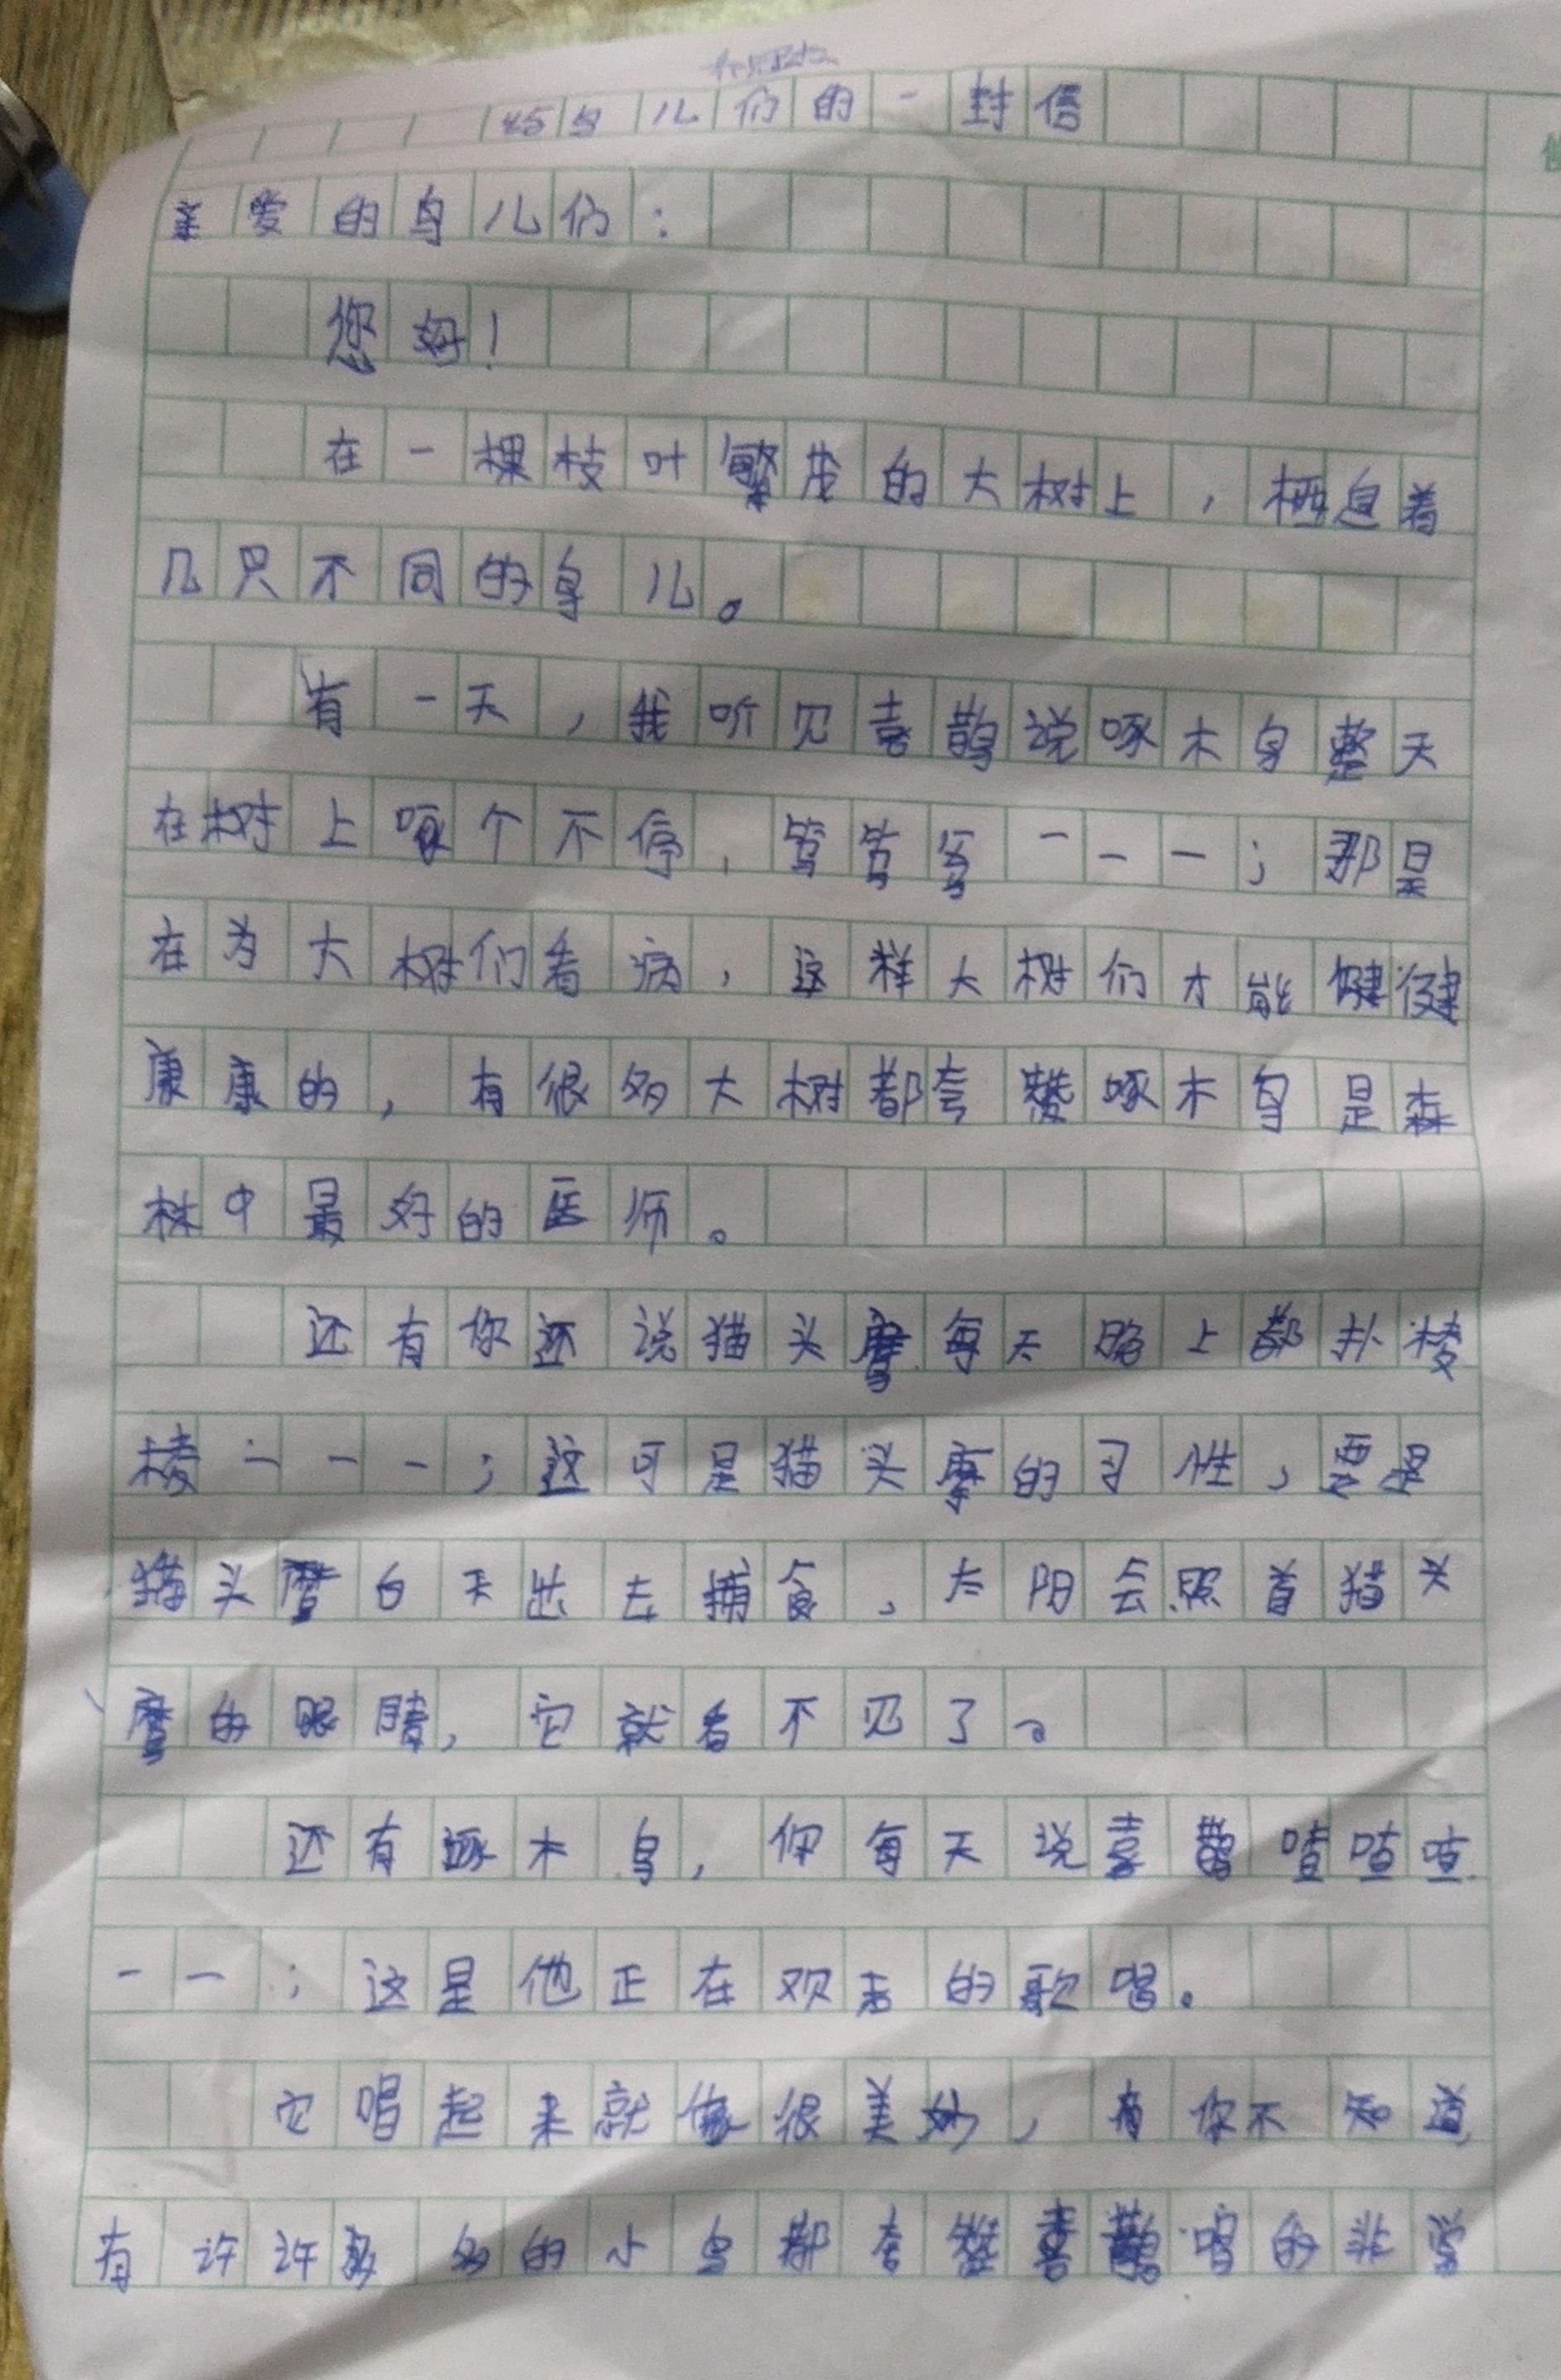 给鸟儿们的一封信
亲爱的鸟儿们：
您好！
在一棵枝叶繁茂的大树上，栖息着
几只不同的鸟儿。
有一天，我听见喜鹊说啄木鸟整天
在树上啄个不停，笃笃笃———；那是
在为大树们看病，这样大树们才能健健
康康的，有很多大树都夸赞啄木鸟是森
林中最好的医师。
还有你还说猫头鹰每天晚上都扑棱
棱———；这可是猫头鹰的习性，要是
猫头鹰白天出去捕食，太阳会照着猫头
鹰的眼睛，它就看不见了。
还有啄木鸟，你每天说喜鹊喳喳喳
——；这是他正在欢乐的歌唱。
它唱起来就像很美妙，有你不知道
有许许多多的小鸟都夸赞喜鹊唱的非常